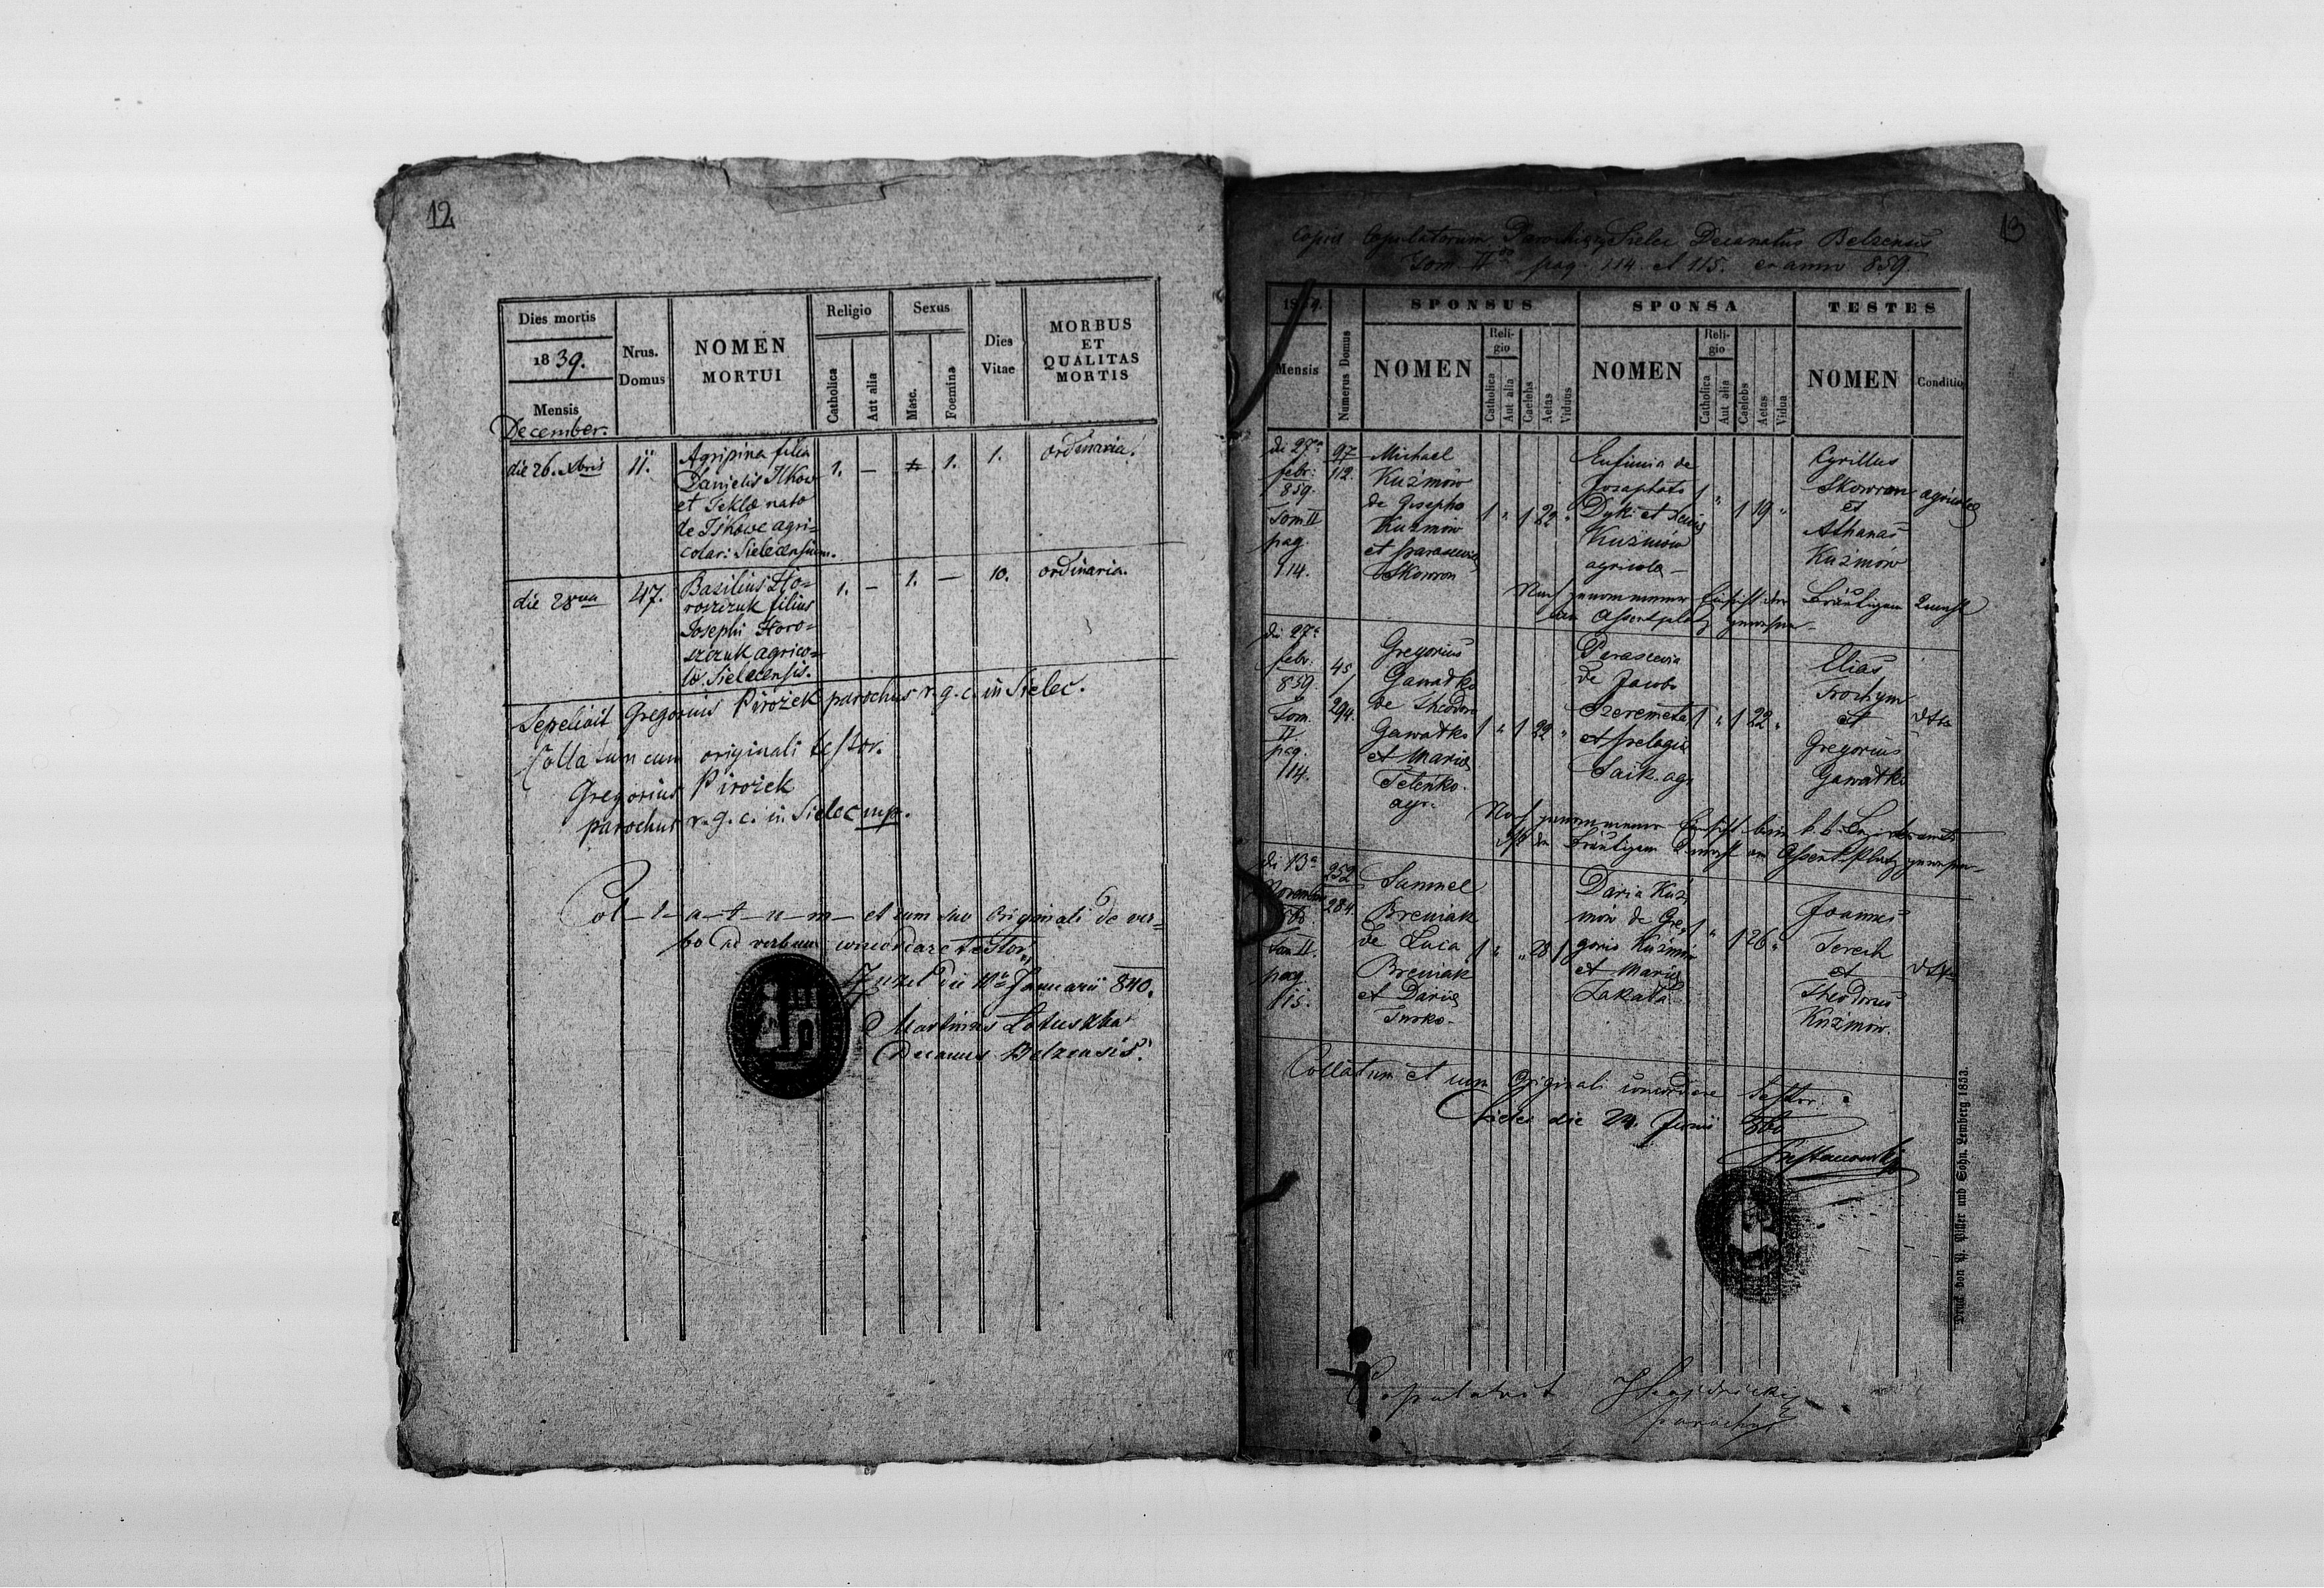 12
Dies mortis
1839.
Mensis
December.
Nrus.
Domus
NOMEN
MORTUI
Religio
Catholica
Aut alia
Sexus
Masc.
Foemina
Dies
Vitae
MORBUS
ET
QUALITAS
MORTIS
die 26. Xbris
11.
Agripina filia
Danielis Ilkow
et Teklæ nato
de Ilkowe agri=
colar: Sielecensium.
1. — 1. 1. ordinaria.
die 28va
47.
Basilius Ho=
roszczuk filius
Josephi Horo=
szczuk agrico=
læ Sielecensis.
1. — 1. — 10. ordinaria.
Sepelivit Gregorius Pirożek parochus r. g. c. in Sielec.
Collatum cum originali testor.
Gregorius Pirożek
parochus r. g. c. in Sielec mp.
Col-l-a-t-u-m- et cum suo originali de ver=
bo ad verbum concordare testor
die 10a Januarii 840.
Martinus
Decanus Belzensis.
13
Copia Copulatorum Parochiæ Sielec Decanatus Belzensis
Tom IIdo pag 114 et 115. ex anno 859.
Mensis
Numerus Domus
SPONSUS
NOMEN
Reli-
gio
Catholica
Aut alia
Caelebs
Aetas
Viduus
SPONSA
NOMEN
Reli-
gio
Catholica
Aut alia
Caelebs
Aetas
Vidua
TESTES
NOMEN
Conditio
di 27a
febr:
859.
Tom II
pag.
114.
97
112.
Michael
Kuźmów
de Josepho
Kuźmów
et Parascevia
Skowron
1 " 1 22 "
Eufimia de
Josaphato
Dyki et
Kuźmów
agricola —
1 " 1 19 "
Cyrillus
Skowron
et
Athanas
Kuźmów
agricolæ
Nach genommener Einsicht der Bräutigam 2 mahl
am Assentplatz gewesen —
di 27a
febr.
859
Tom.
II.
pag.
114.
45
/
294.
Gregorius
Gawadko
de Theodoro
Gawadko
et Maria
Telenko
agr.
1 " 1 22 "
Parascevia
de Jacobo
Szeremeta
et Pelagia
Saik agr
1 " 1 22 "
Elias
Trochym
et
Gregorius
Gawadko
dtto
Nach genommener Einsicht beim k. k. Bezirksamte
ist der Bräutigam 2 mahl am Assentplatz gewesen —
di 13a
Novembr
Tom II.
pag
115.
252
284
Samuel
Breniak
de Luca
Breniak
et Daria
Turko.
1 " " 28 1
Daria Kuź
mów de Gre
gorio Kuźmów
et Maria
Łakata
1 " 1 26 "
Joannes
Terech
et
Theodorus
Kuźmów.
dtto
Collatum et cum Originali concordare testor.
Sielec die 24. Junii 860
Copulavit
parochus
Druck von P. Piller und Sohn. Lemberg 1853.